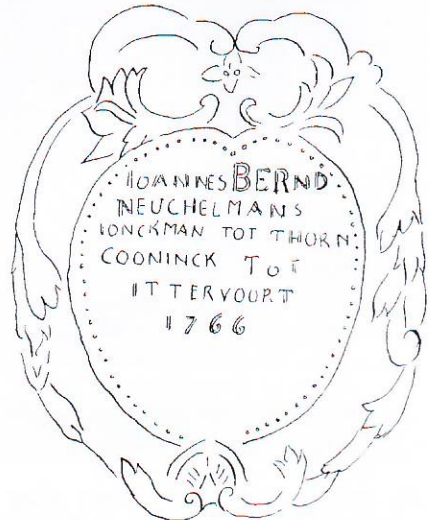 IOANNES BERND
NEUCHELMANS
IONCKMAN TOT THORN
COONINCK TOT
ITTERVOORT
1766